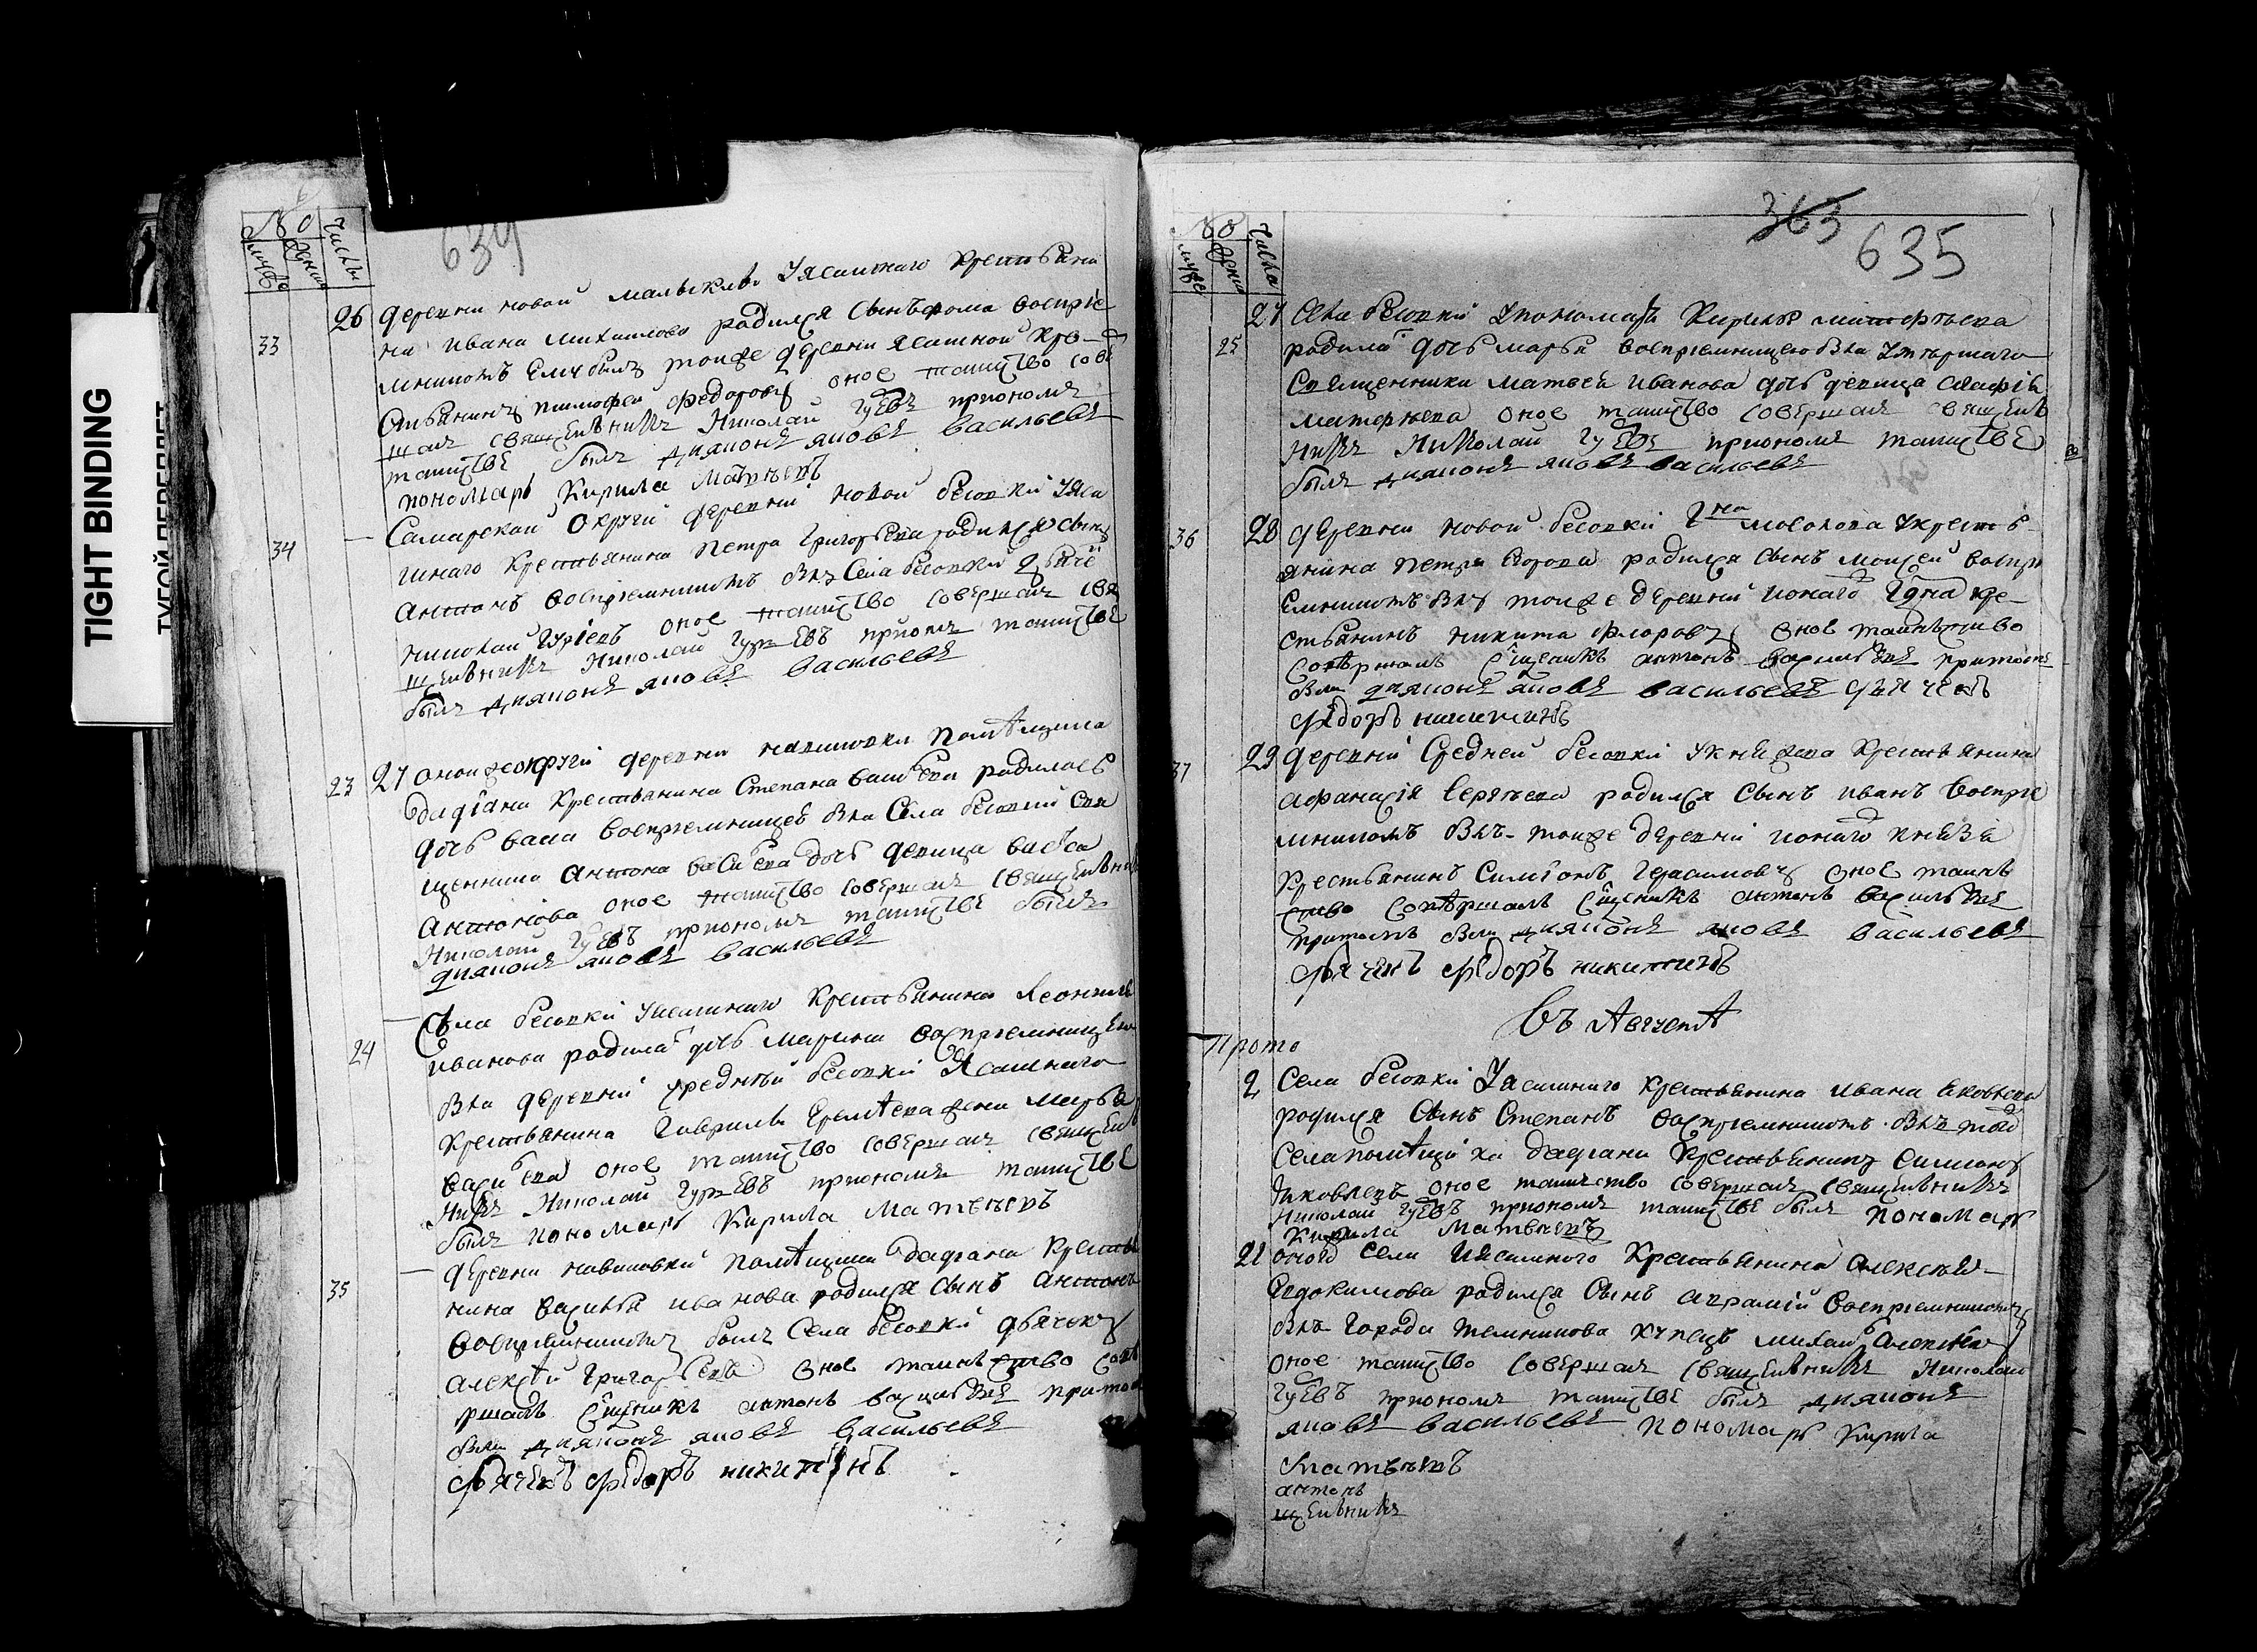 TIGHT BINDING
ТУГОЙ ПЕРЕПЛЕТ
634
№
Числы
26 деревни новой малыклы у ясашнаго крестьяни
33 на ивана михаилова родился сынъ фома восприе
мникомъ ему былъ тоижъ деревни ясашной кре
стьянинъ тимофеи федоровъ оное таинство сове
шалъ священникъ Николай Гурьевъ приономъ
таинстве былъ диаконъ яковъ васильевъ
пономарь Кирила Матвѣевъ
Самарской округи деревни новой бесовки у яса
34 шнаго крестьянина петра григорьева родился сынъ
антонъ восприемникомъ былъ села бесовки
николай гуриевъ оное таинство совершалъ свя
щенникъ Николай Гурьевъ приономъ таинстве
былъ диаконъ яковъ васильевъ
23 27 оной же округи деревни помѣщика
дадiана крестьянина степана васильева родилась
дочь васа восприемницей была села бесовки свя
щенника антона васильева дочь девица васса
антонова оное таинство совершалъ священни
Николай Гурьевъ приономъ таинстве былъ
диаконъ яковъ васильевъ
Села бесовки у ясашнаго крестьянина
24 иванова родилась дочь марина восприемницею
была деревни средней бесовки ясашнаго
крестьянина гаврилы еремѣева жена марфа
васильева оное таинство совершалъ священ
никъ Николай Гурьевъ приономъ таинстве
былъ пономарь Кирила Матвеевъ
35 деревни помѣщика дадиана крестья
нина василья иванова родился сынъ антонъ
восприемникомъ былъ села бесовки дьячокъ
алексѣй григорьевъ оное таинство сове
ршалъ сщенникъ антонъ васильевъ притомъ
были диаконъ яковъ васильевъ
дьячекъ федоръ никитинъ
363
635
№
Числа
27 села бесовки у пономаря кирилы матфѣева
25 родилась дочь марфа восприемницею была умершаго
священника матвея иванова дочь девица
матфѣева оное таинство совершалъ священ
никъ Николай Гурьевъ приономъ таинстве
былъ диаконъ яковъ васильевъ
36 28 деревни новой бесовки гна мосолова у кресть
янина петра егорова родился сынъ моисей воспри
емникомъ былъ тоижъ деревни и онаго гдна кре
стьянинъ никита флоровъ оное таинство
совершалъ сщенникъ антонъ васильевъ притомъ
были диаконъ яковъ васильевъ дьячекъ
федоръ никитинъ
37 29 деревни средней бесовки у князева крестьянина
афанасия сергѣева родился сынъ иванъ восприе
мникомъ былъ тоиже деревни и онаго князя
крестьянинъ симионъ герасимовъ оное таин
ство совершалъ сщенникъ антонъ васильевъ
притомъ были диаконъ яковъ васильевъ
дьячекъ федоръ никитинъ
въ Августѣ
2 Села бесовки у ясашнаго крестьянина ивана яковлева
родился сынъ степанъ восприемникомъ былъ того
села помѣщика дадиана крестьянинъ симионъ
яковлевъ оное таинство совершалъ священникъ
Николай Гурьевъ приономъ таинстве былъ пономарь
Кирила Матвеевъ
21 оного села у ясашного крестьянина алексѣя
евдокимова родился сынъ аврамий восприемникомъ
былъ города темникова купецъ михаилъ
оное таинство совершалъ священникъ Николай
Гурьевъ приономъ таинстве былъ диаконъ
яковъ васильевъ пономарь Кирила
Матвѣевъ
антонъ
щенникъ